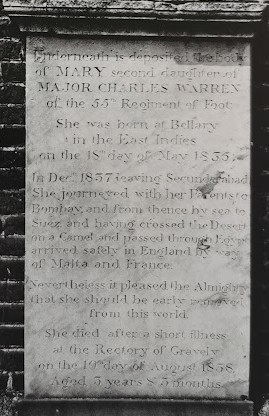 Underneath is deposited the body
of MARY second daughter of
MAJOR CHARLES WARREN
of the 55th Regiment of Foot:
She was born at Bellary
in the East Indies
on the 18th day of May 1835:
In Decr 1837 leaving Secunderabad
She journeyed with her Parents to
Bombay and from thence by sea to
Suez and having crossed the Desert
on a Camel and passed through Egypt
arrived safely in England by way
of Malta and France.
Nevertheless it pleased the Almighty
that she should be early removed
from this world.
She died after a short illness
at the Rectory of Gravely
on the 19th day of August 1838.
Aged 3 years & 3 months.